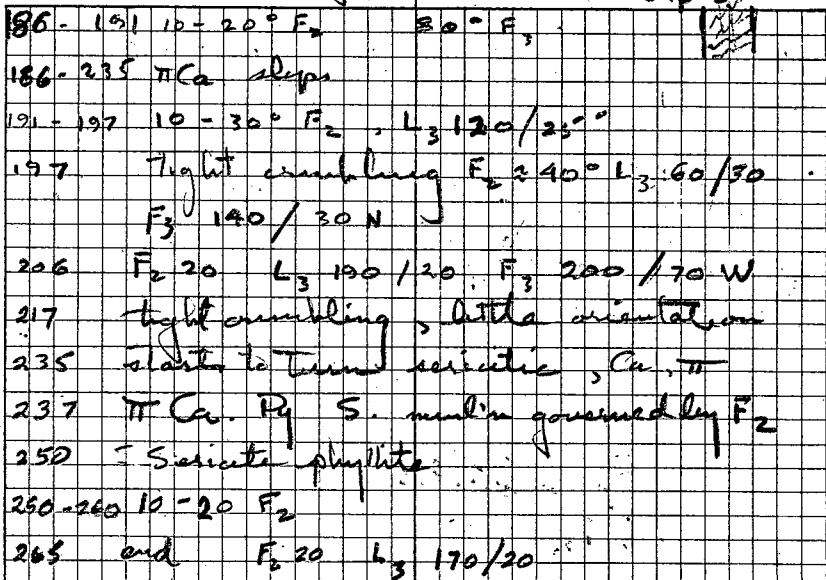 186 - 191 10 - 20° F₂ 80° F₃
186 - 235 πCa slips
191 - 197 10 - 30° F₂, L₃ 120/25°
197 Tight crumbling F₂ ≈ 40° L₃ 60/30
F₃ 140/30 N
206 F₂ 20 L₃ 190/20. F₃ 200/70 W
217 tight crumbling, little orientation
235 start to Turn sericitic, Ca, π
237 π Ca. Py S. governed by F₂
250 = Sericite phyllite
250 - 260 10 - 20 F₂
265 end F₂ 20 L₃ 170/20